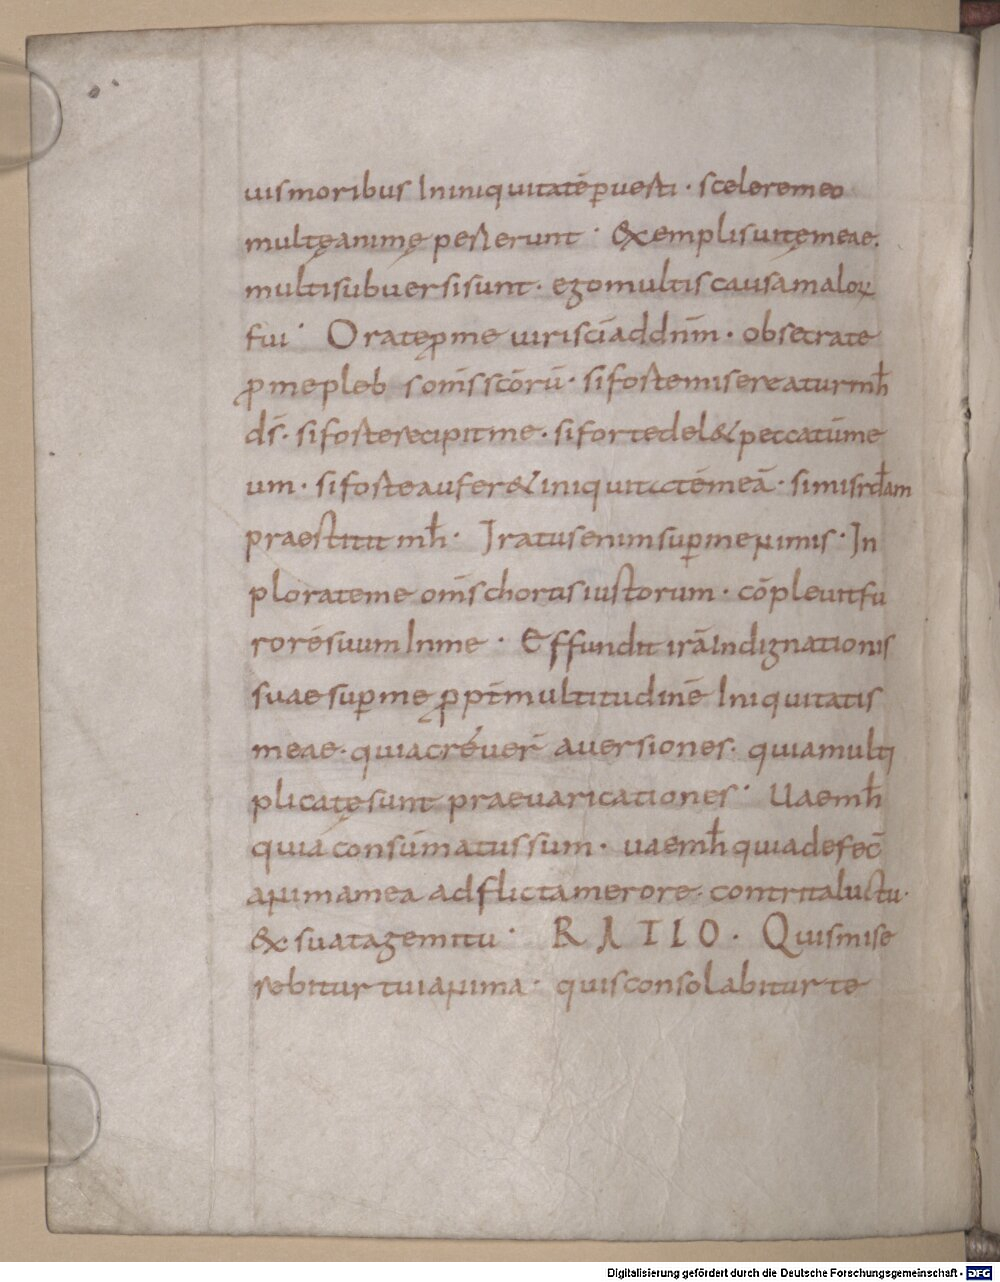 uismoribus Ininiquitatē puerti · sceleremeo
multęanimę perierunt · Exemplisuitęmeae.
multisubuersisunt · egomultiscausamaloꝝ
fui · Orateꝓme uirisc̄iaddn̄m · obsecrate
ꝓmepleb s om̄sscōrū · sifortemisereaturmh̄
ds̄ · siforterecipitme · sifortedel&peccatūme
um · siforteaufer&iniquitatēmeā · simisrd̄am
praestitit mh̄ · Iratusenimsuꝑmenimis · In
plorateme om̄schorusiustorum · cōpleuitfu
rorēsuumInme · Effundit irāIndignationis
suaesuꝑme ꝓpt̄multitudinē Iniquitatis
meae · quiacréuer̄ auersiones · quiamulti
plicatęsunt praeuaricationes · Uaemh̄
quiaconsūmatussum · uaemh̄quiadefec̄
animamea adflictamerore · contritaluctu ·
&suatagemitu · RATIO · Quismise
rebitur tuianima · quisconsolabitur te
Digitalisierung gefördert durch die Deutsche Forschungsgemeinschaft - DFG